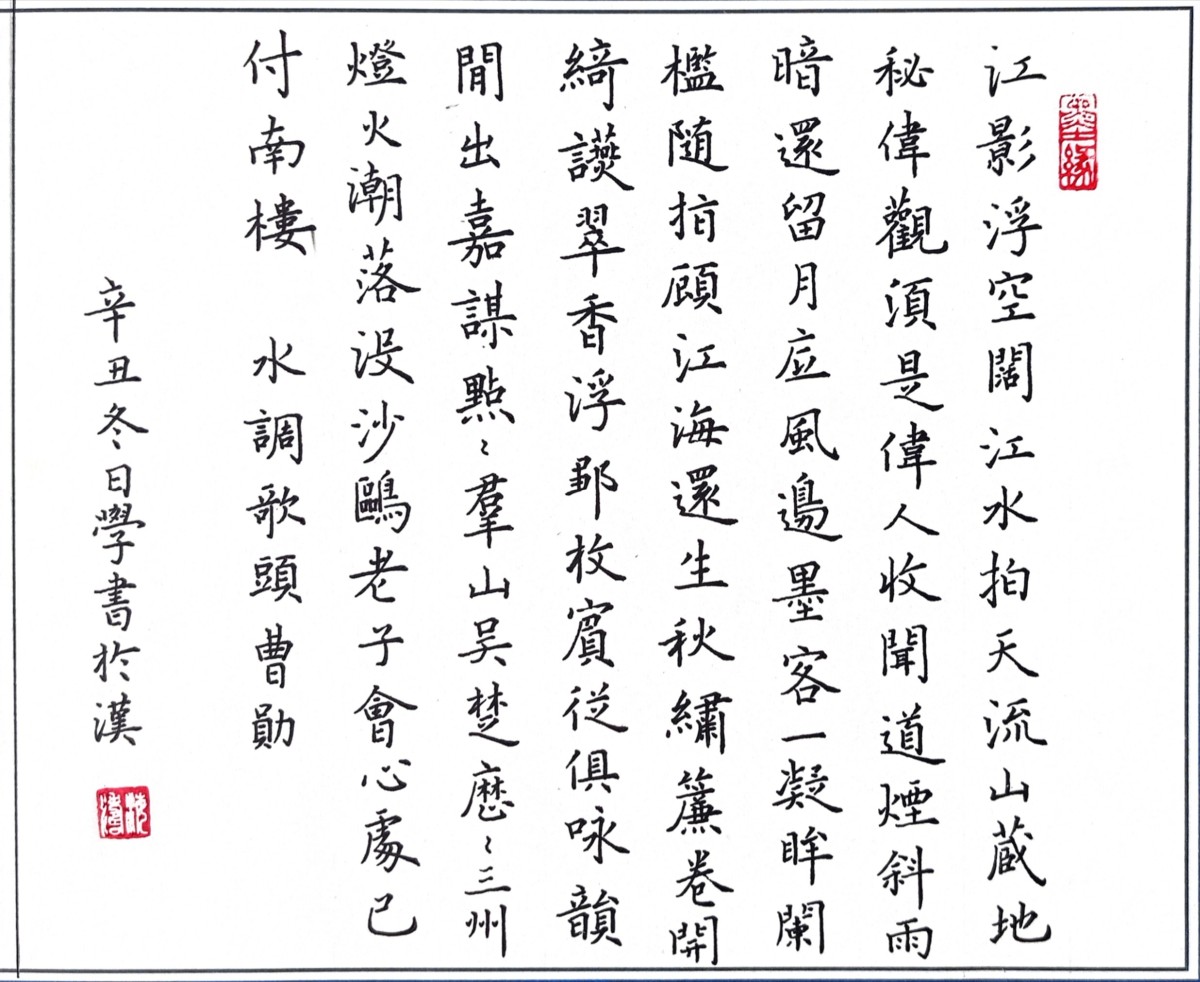 墨緣
江影浮空闊江水拍天流山蔵地
秘偉觀須是偉人收聞道煙斜雨
暗還留月㡳風邊墨客一凝眸闌
檻随指顧江海還生秋繡簾卷開
綺讌翠香浮鄴枚賓從俱咏韻
閒出嘉謀點〻羣山吴楚歴〻三州
燈火潮落没沙鷗老子會心處已
付南樓 水調歌頭曹勛
辛丑冬日學書於漢